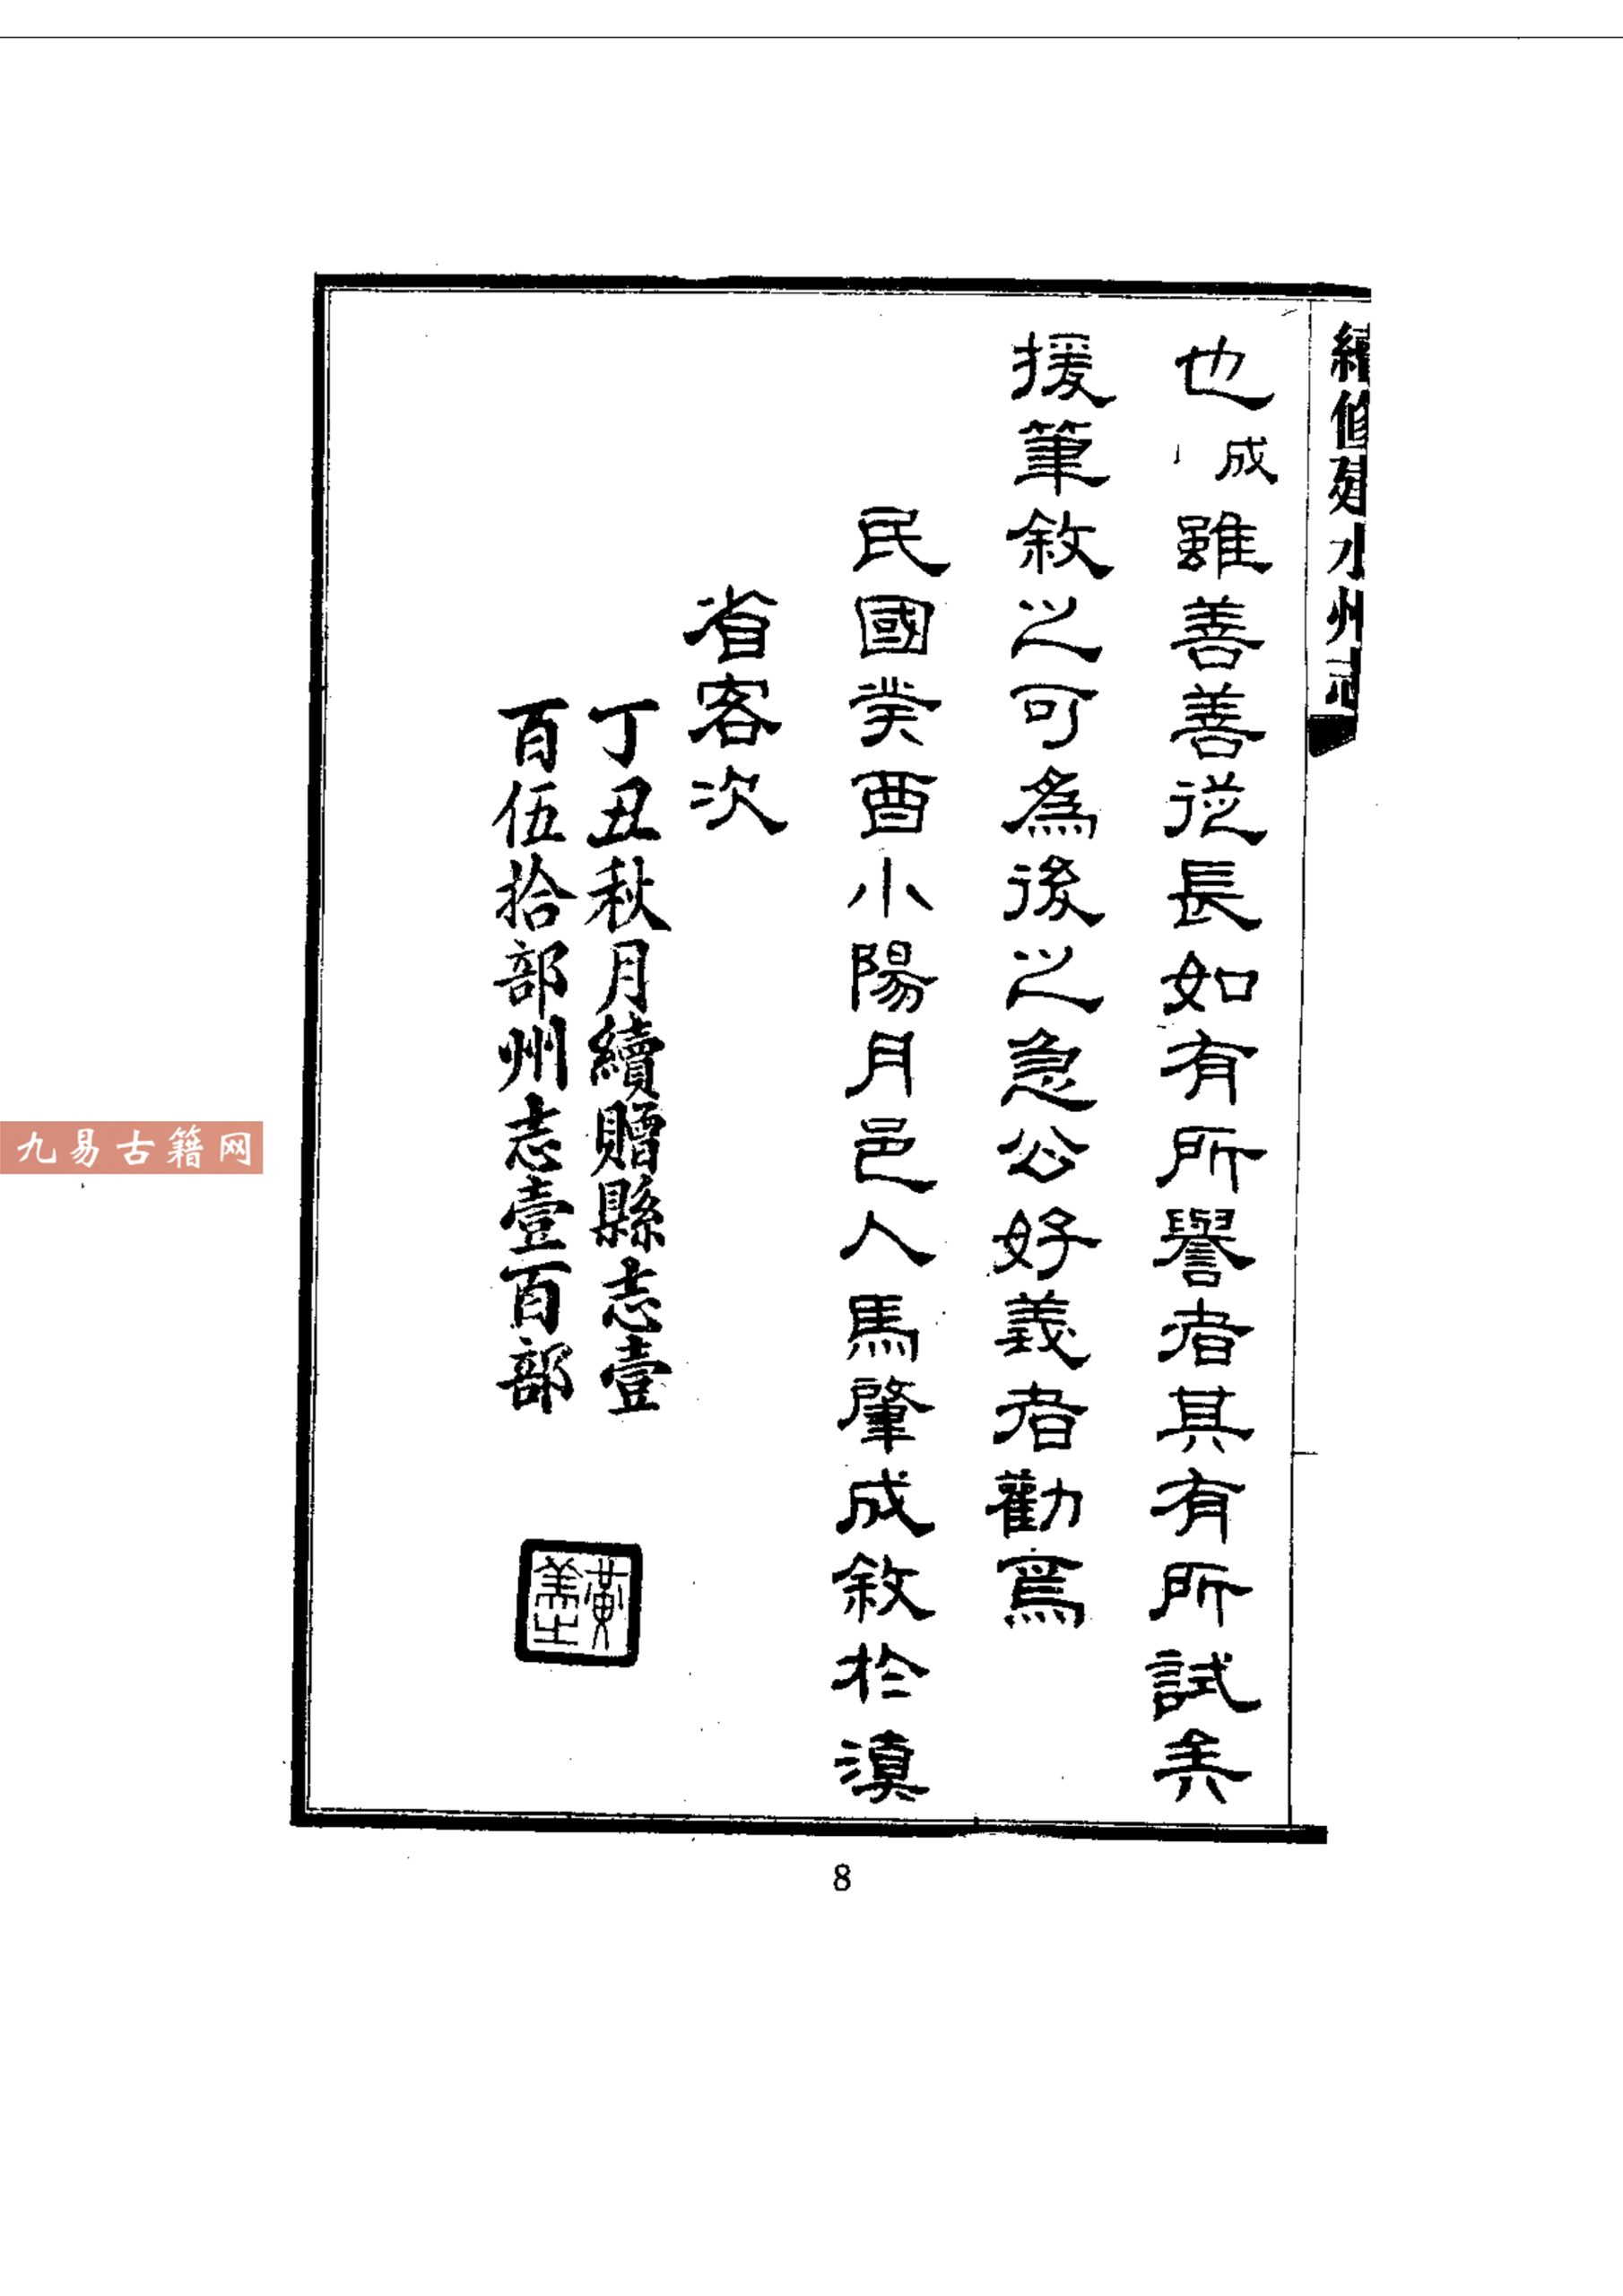 續修建水州志
也成雖善善從長如有所譽者其有所試矣
援筆敘之可為後之急公好義者勸焉
民國癸酉小陽月邑人馬肇成敘於滇
省客次
丁丑秋月續贈縣志壹
百伍拾部州志壹百部
黃
美之
九易古籍网
8